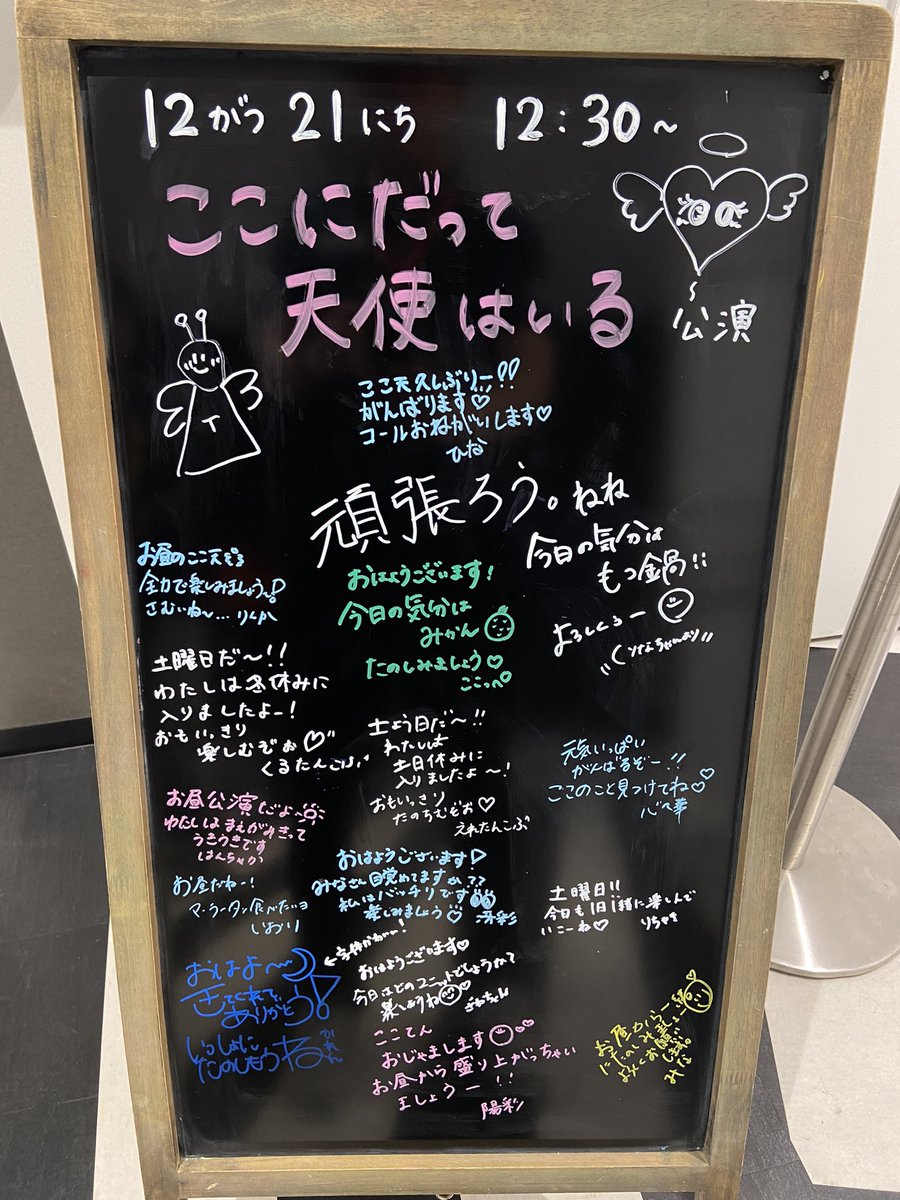 12がつ 21にち 12:30~
ここにだって
天使はいる
公演
T
ここ天久しぶりー!!
がんばります♡
コールおねがいします♡
ひな
頑張ろう。ねね
今日の気分は
もつ鍋!!
よろしくぅー
お昼のここ天も
全力で楽しみましょう~!
さむいね~…
おはようございます!
今日の気分は
みかん
たのしみましょう♡
土曜日だ~!!
わたしは冬休みに
入りましたよー!
おもいっきり
楽しむぞぉ♡
くるたんこぶ
土よう日だ~!!
わたしは
土日休みに
入りましたよ~!
おもいっきり
たのちむぞお♡
えれたんこぶ
元気いっぱい
がんばるぞー!!
ここのこと見つけてね♡
お昼公演だよ
わたしはまえがみきって
うきうきです
お昼だねー!
マーラータン食べたいヨ
しおり
おはようございます!
みなさん目覚めてますか??
私はバッチリです
楽しみましょう♡
土曜日!!
今日も1日1緒に楽しんで
いこーね♡
りちゃき
おはよ~
きてくれて
ありがとう!
いっしょに
たのしもうね
かれん
おはようございます♡
今日はどのユニットでしょうねて
楽しもうね
ここてん
おじゃまします
お昼から盛り上がっちゃい
ましょうー!!
陽彩
お昼から一緒